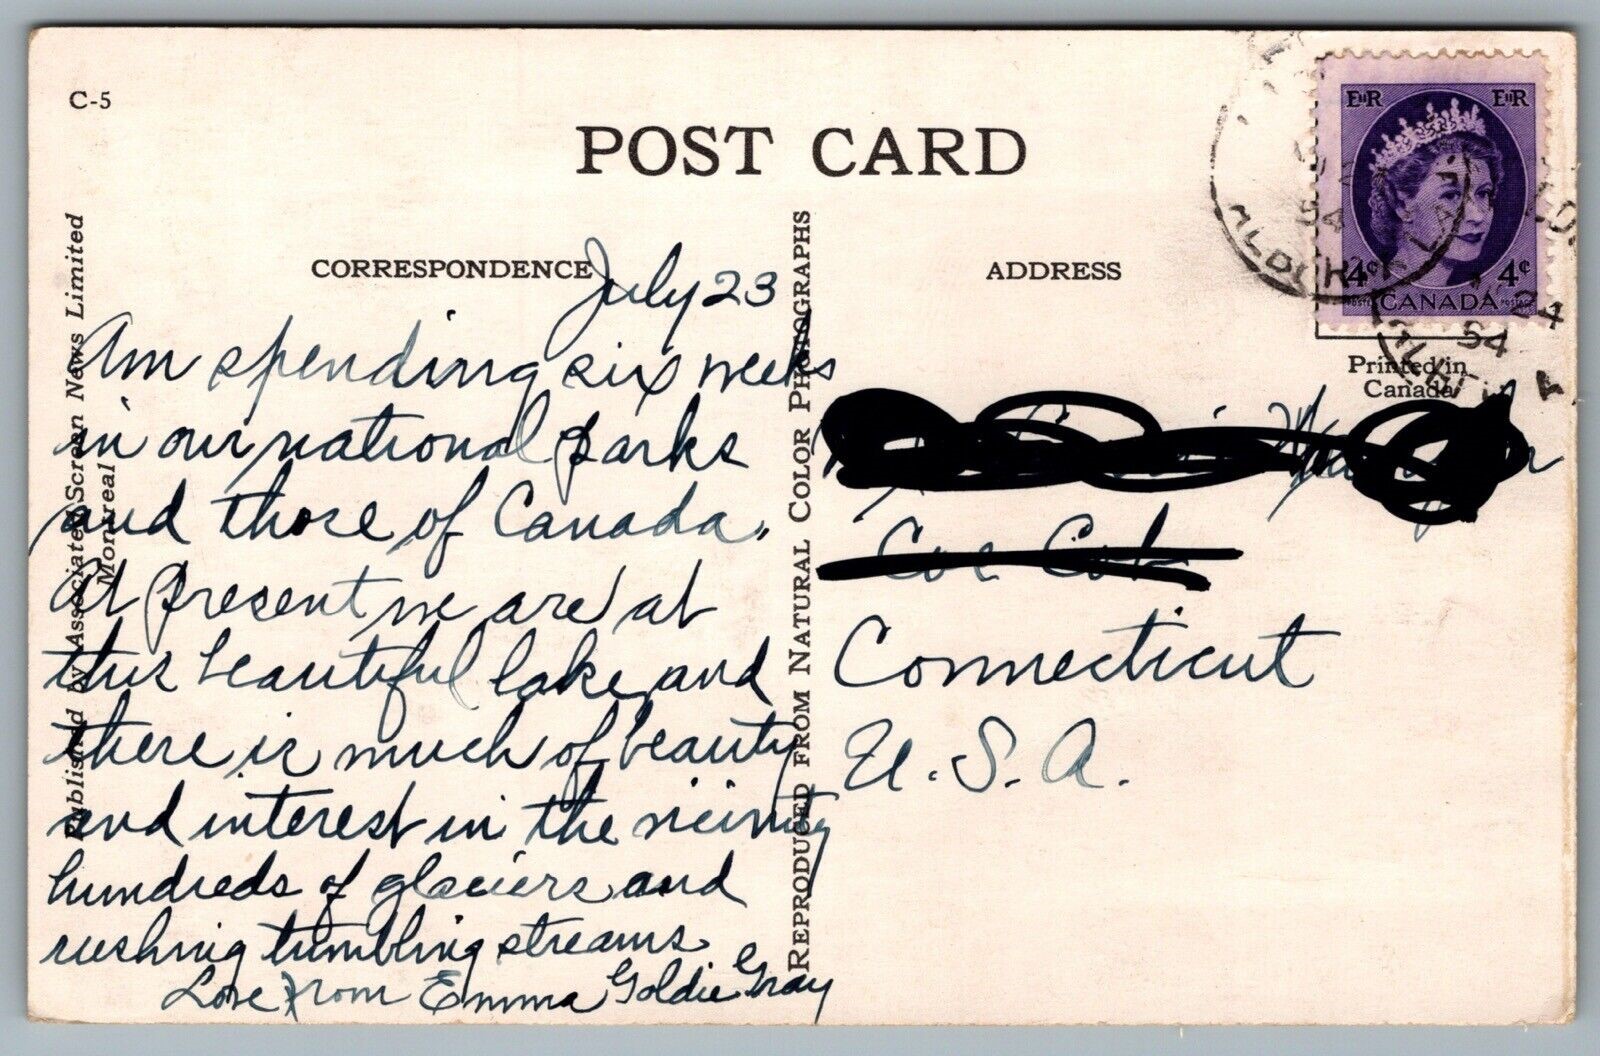 C-5
POST CARD
CORRESPONDENCE
ADDRESS
Published by Associated Screen News Limited
Montreal
REPRODUCED FROM NATURAL COLOR PHOTOGRAPHS
EIIR EIIR
4¢ 4¢
POSTES CANADA POSTAGE
Printed in
Canada
24
54
July 23
Am spending six weeks
in our national parks
and those of Canada.
At present we are at
this beautiful lake and
there is much of beauty
and interest in the vicinity
hundreds of glaciers and
rushing tumbling streams
Love from Emma Goldie Gray
Cos Cob
Connecticut
U.S.A.